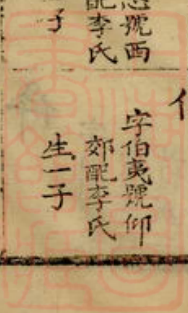 號西
配李氏
子
字伯夷號仰
郊配李氏
生一子